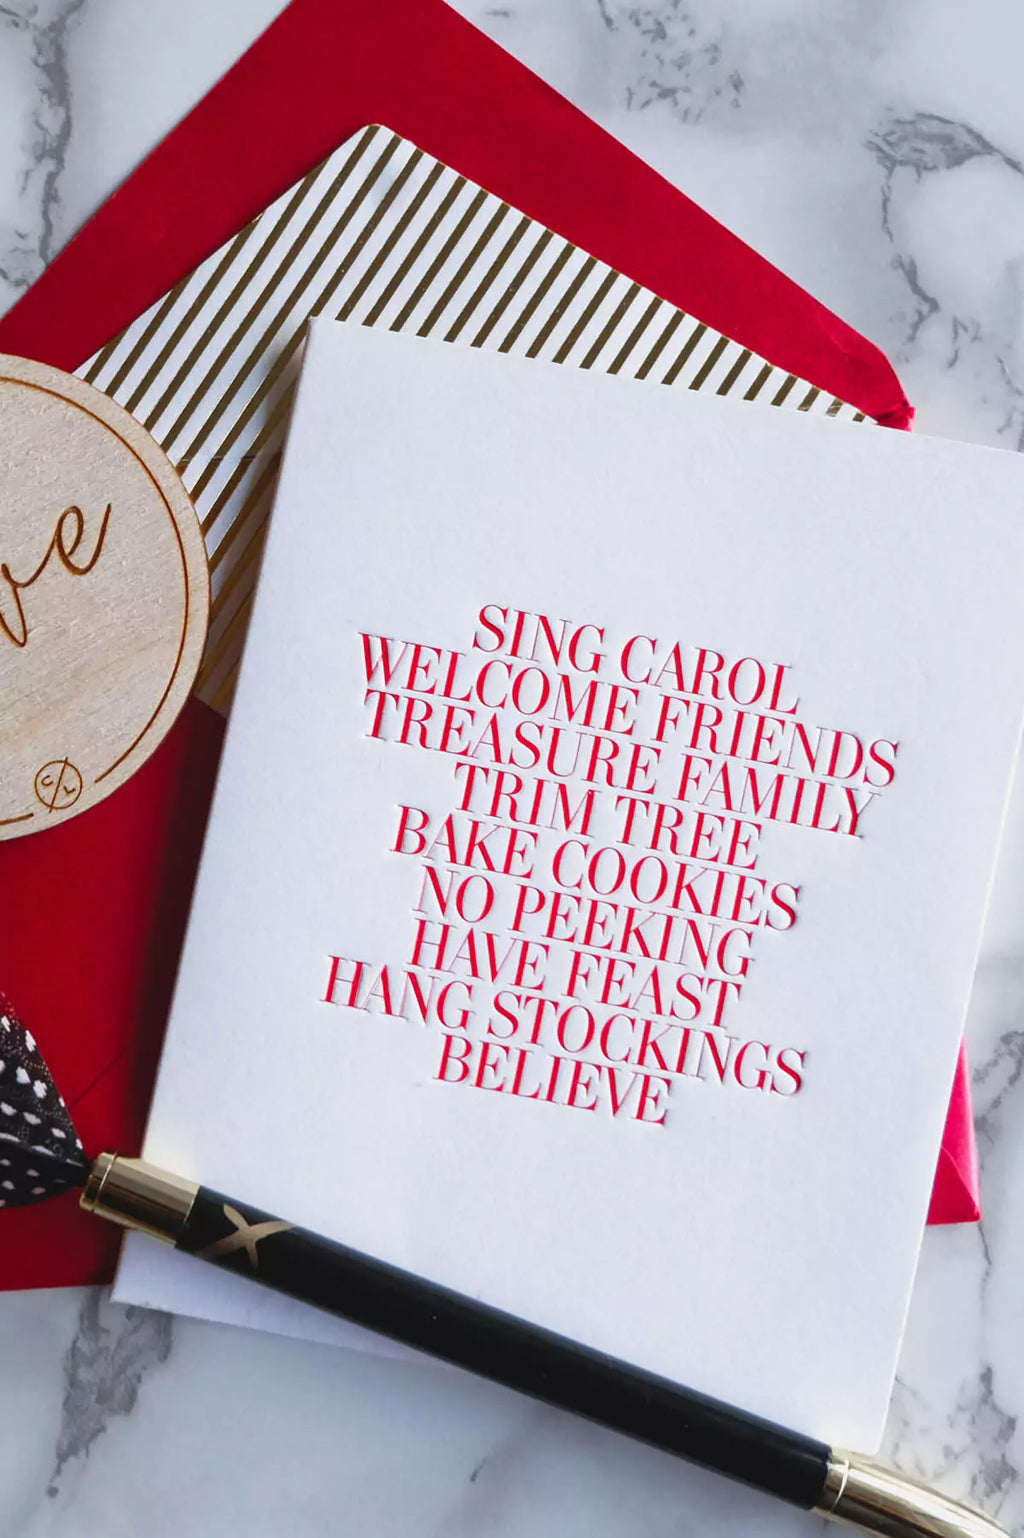 SING CAROL
WELCOME FRIENDS
TREASURE FAMILY
TRIM TREE
BAKE COOKIES
NO PEEKING
HAVE FEAST
HANG STOCKINGS
BELIEVE
ve
C L